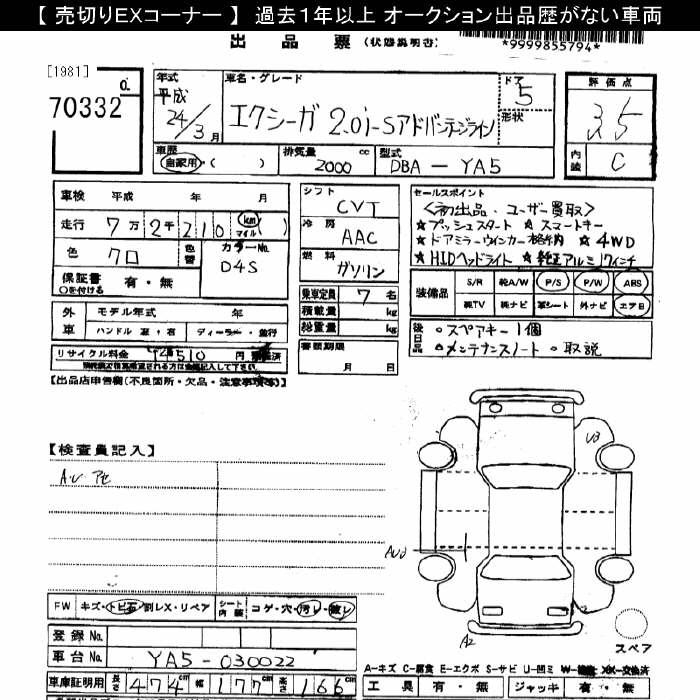 【 売切りEXコーナー 】 過去1年以上 オークション出品歴がない車両
出品票 (状態説明書)
*9999855794*
[1981]
70332
年式 平成 24/3月
車名・グレード エクシーガ 2.0i-Sアドバンテージライン
ドア 5
形状
評価点 3.5
内装 C
車歴 自家用・( )
排気量 2000 cc
型式 DBA-YA5
車検 平成 年 月
走行 7万2千210 km マイル ( )
色 クロ
色替
カラーNo. D4S
保証書 有・無
○を付ける
シフト CVT
冷房 AAC
燃料 ガソリン
セールスポイント
<初出品・ユーザー買取>
☆プッシュスタート ☆スマートキー
☆ドアミラーウインカー格納 ☆4WD
☆HIDヘッドライト ☆純正アルミ17インチ
装備品 S/R 純A/W P/S P/W ABS
純TV 純ナビ 革シート 外ナビ エアB
外車 モデル年式 年
ハンドル 左・右 ディーラー・並行
リサイクル料金 円 預託済
乗車定員 7名
積載量 kg
総重量 kg
書類期限
月 日
後日品 ○スペアキー1個
○メンテナンスノート ○取説
【出品店申告欄(不良箇所・欠品・注意事項等)】
【検査員記入】
U3
A2
FW キズ・トビ石・割レX・リペア シート内装 コゲ・穴・汚レ・破レ
登録No.
車台No. YA5-030022
車庫証明用 長さ 474cm 幅 177cm 高さ 166cm
スペア
A-キズ C-腐食 E-エクボ S-サビ U-凹ミ W-補修 XX-交換済
工具 有・無 ジャッキ 有・無